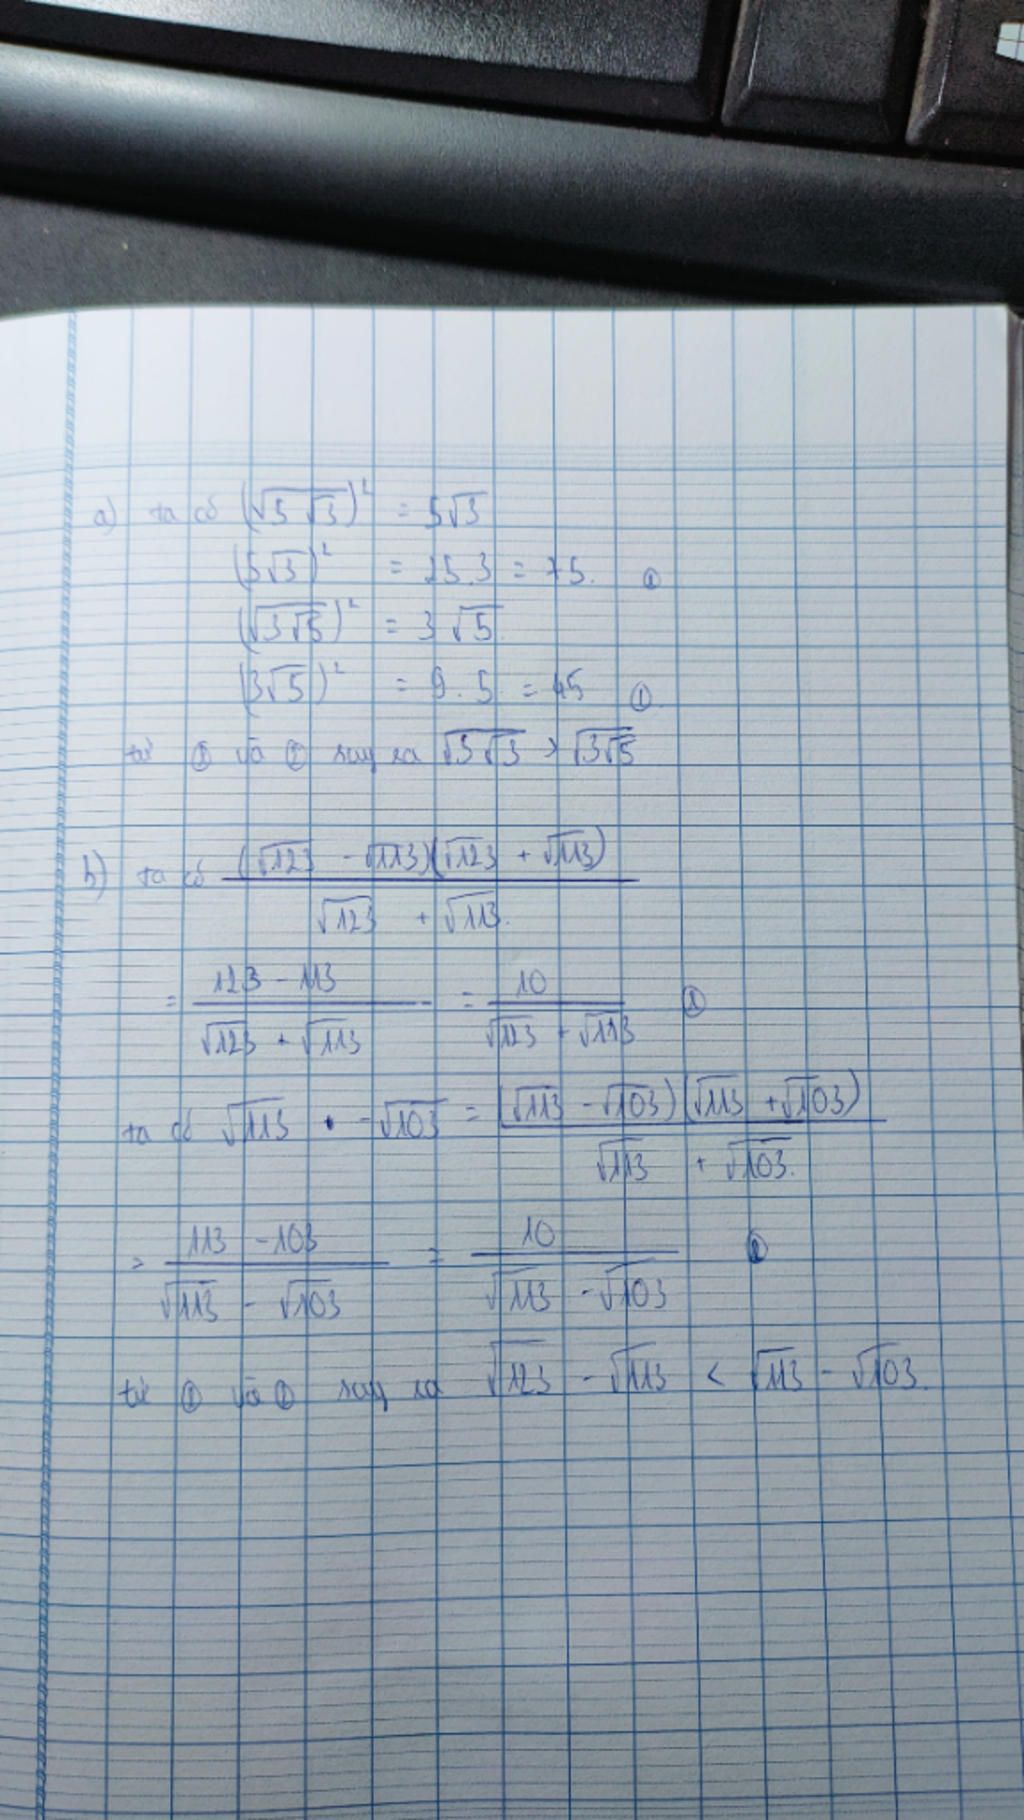 a) ta có (√(5√3))² = 5√3
(5√3)² = 25.3 = 75. ①
(√(3√5))² = 3√5
(3√5)² = 9.5 = 45 ①
từ ① và ② suy ra √(5√3) > √(3√5)
b) ta có ((√123 - √113)(√123 + √113))/(√123 + √113).
= (123 - 113)/(√123 + √113) = 10/(√123 + √113) ①
ta có √113 - √103 = ((√113 - √103)(√113 + √103))/(√113 + √103.)
= (113 - 103)/(√113 - √103) = 10/(√113 - √103) ②
từ ① và ② suy ra √123 - √113 < √113 - √103.